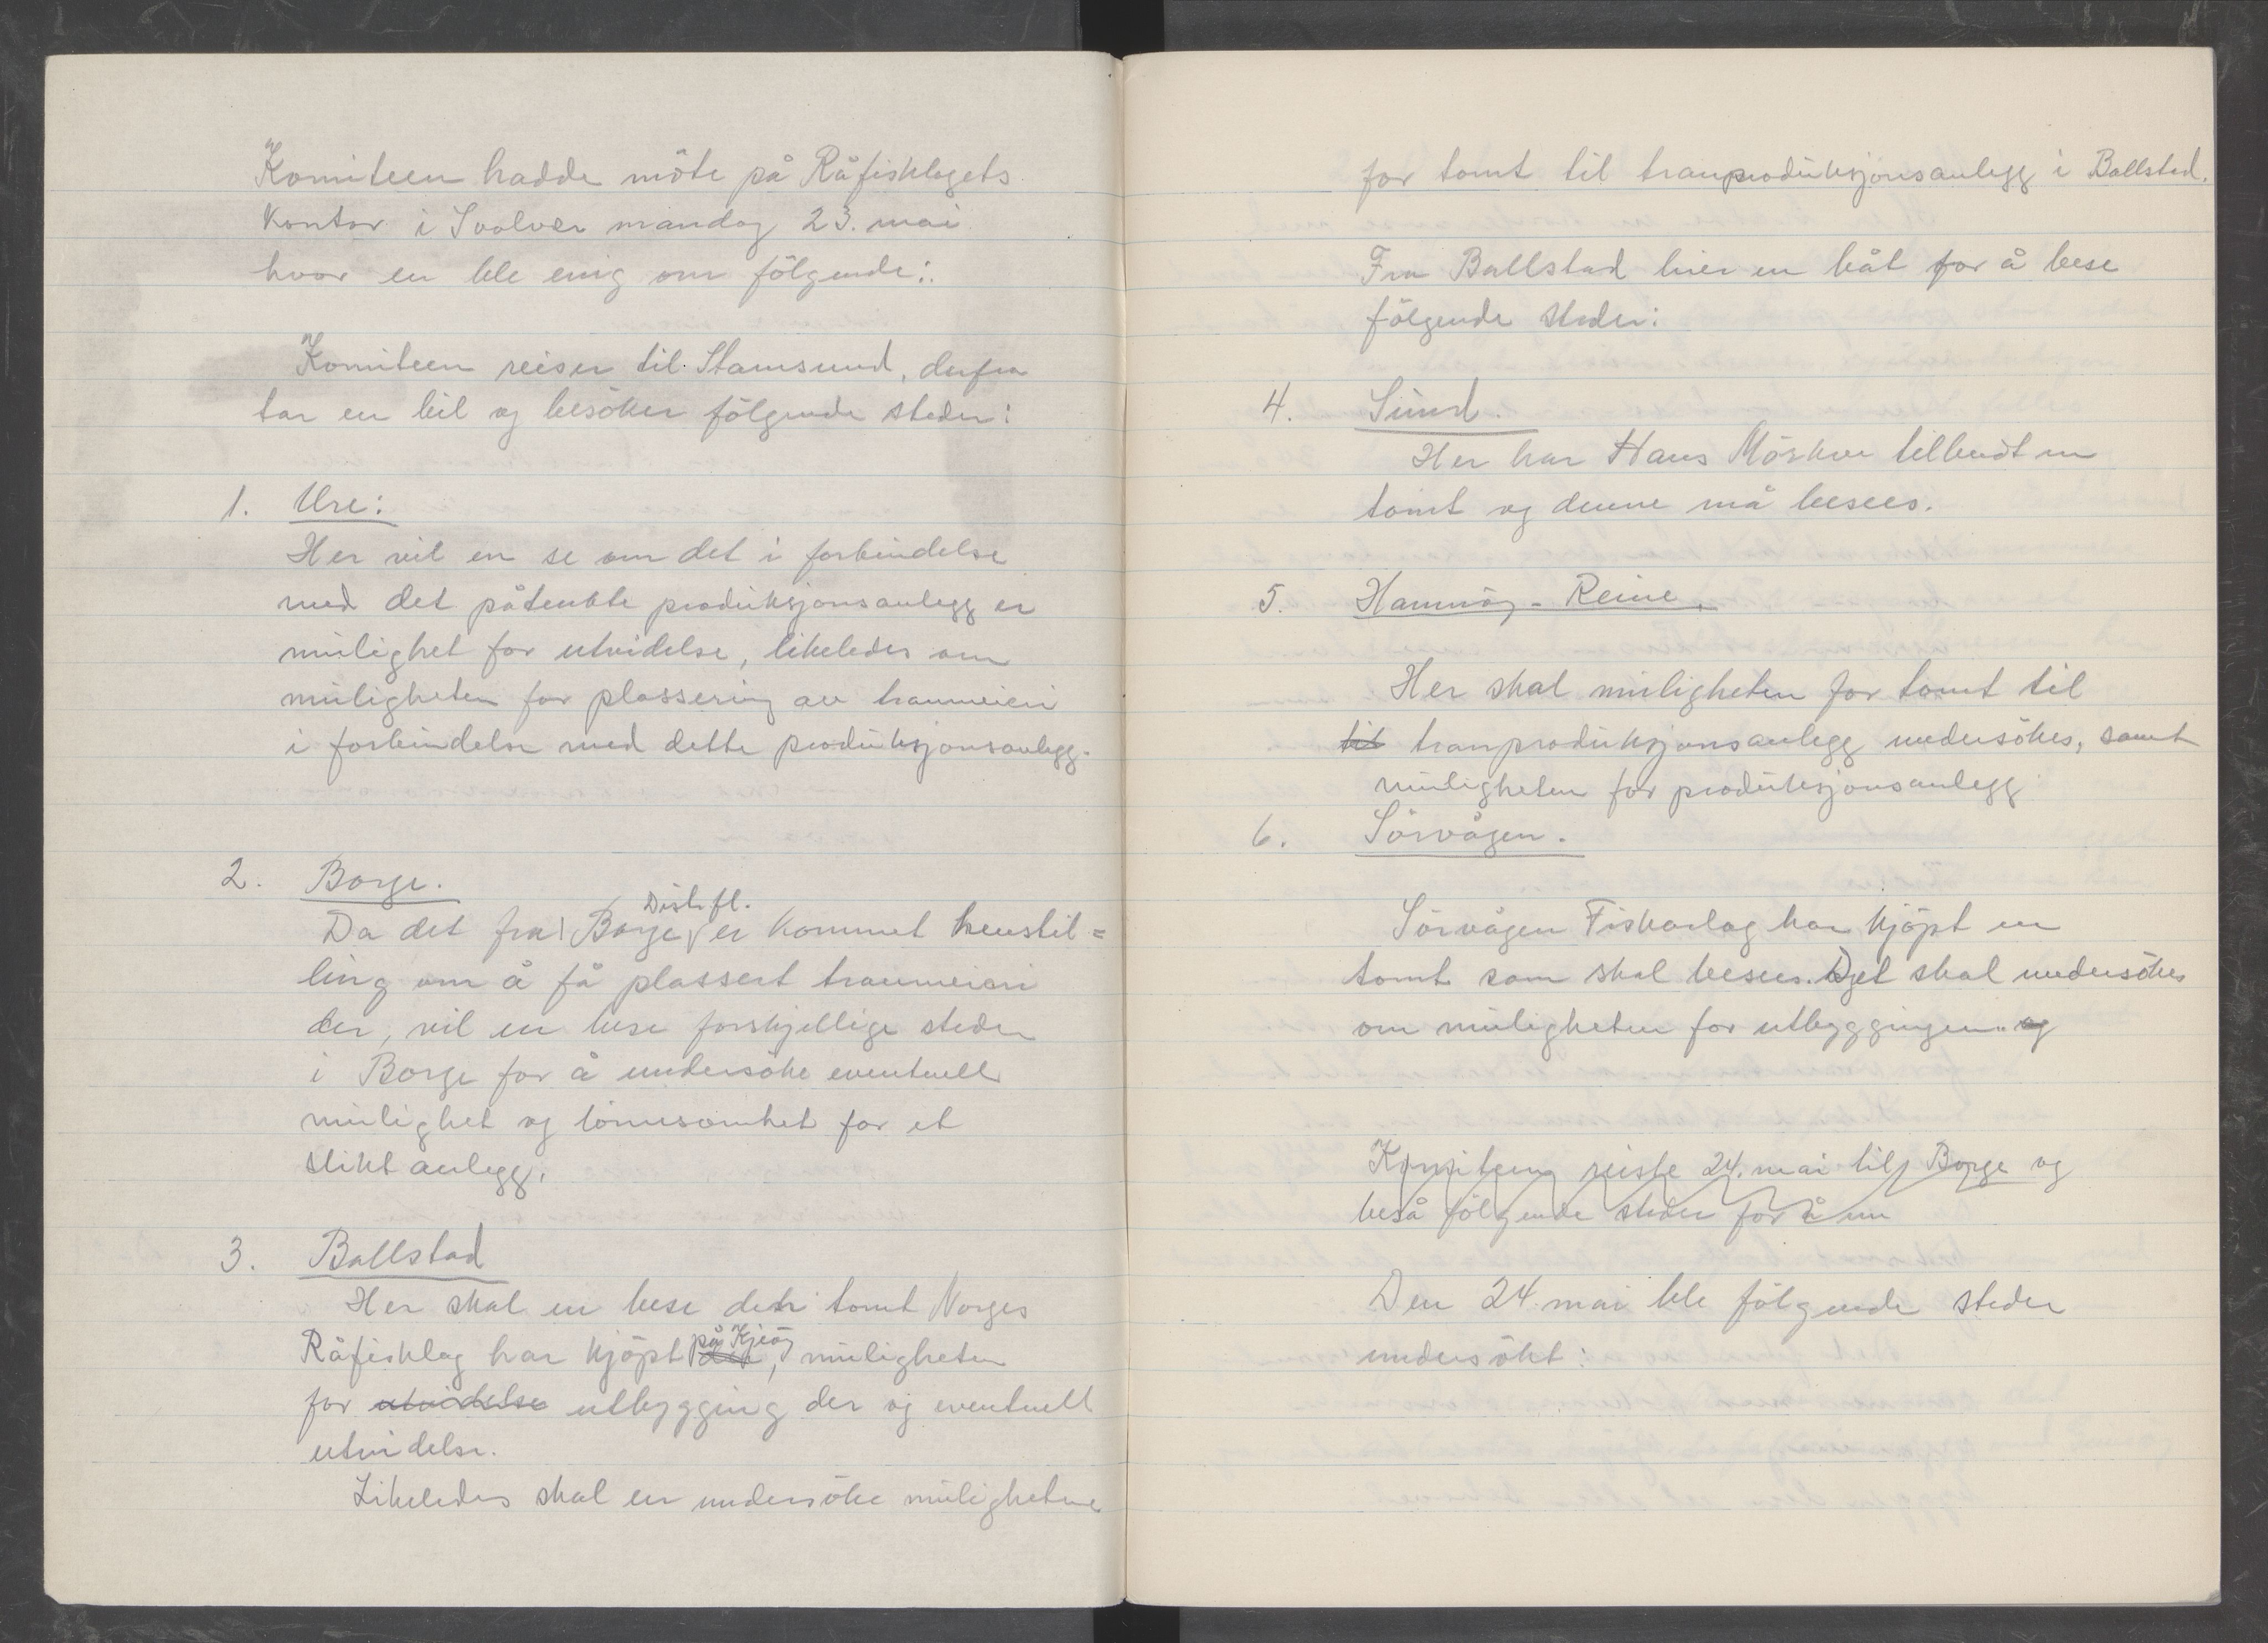 Komiteen hadde möte på Råfisklagets
Kontor i Svolver mandag 23. mai
hvor en ble enig om fölgende:
Komiteen reiser til Stamsund, derfra
tar en bil og besöker fölgende steder:
1. Ure:
Her vil en se om det i forbindelse
med det påtenkte produksjonsanlegg er
mulighet for utvidelse, likeledes om
muligheten for plassering av tranmeieri
i forbindelse med dette produksjonsanlegg.
2. Borge.
Distr. fl.
Da det fra Borge er kommet henstil=
ling om å få plassert tranmeieri
der, vil en bese forskjellige steder
i Borge for å undersöke eventuell
mulighet og lönnsomhet for et
slikt anlegg.
3. Ballstad
Her skal en bese den tomt Norges
på Kjeöy
Råfisklag har kjöpt der, muligheten
for utvidelse utbygging der og eventuell
utvidelse.
Likeledes skal en undersöke mulighetene
for tomt til tranproduksjonsanlegg i Ballstad.
Fra Ballstad leier en båt for å bese
fölgende steder:
4. Sund.
Her har Hans Mörkve tilbudt en
tomt og denne må besees.
5. Hamnöy - Reine.
Her skal muligheten for tomt til
til tranproduksjonsanlegg undersökes, samt
muligheten for produksjonsanlegg
6. Sörvågen.
Sörvågen Fiskarlag har kjöpt en
tomt som skal besees. Det skal undersökes
om muligheten for utbyggingen. og
Komiteen reiste 24. mai til Borge og
beså fölgende steder for å um
Den 24. mai ble fölgende steder
undersökt: